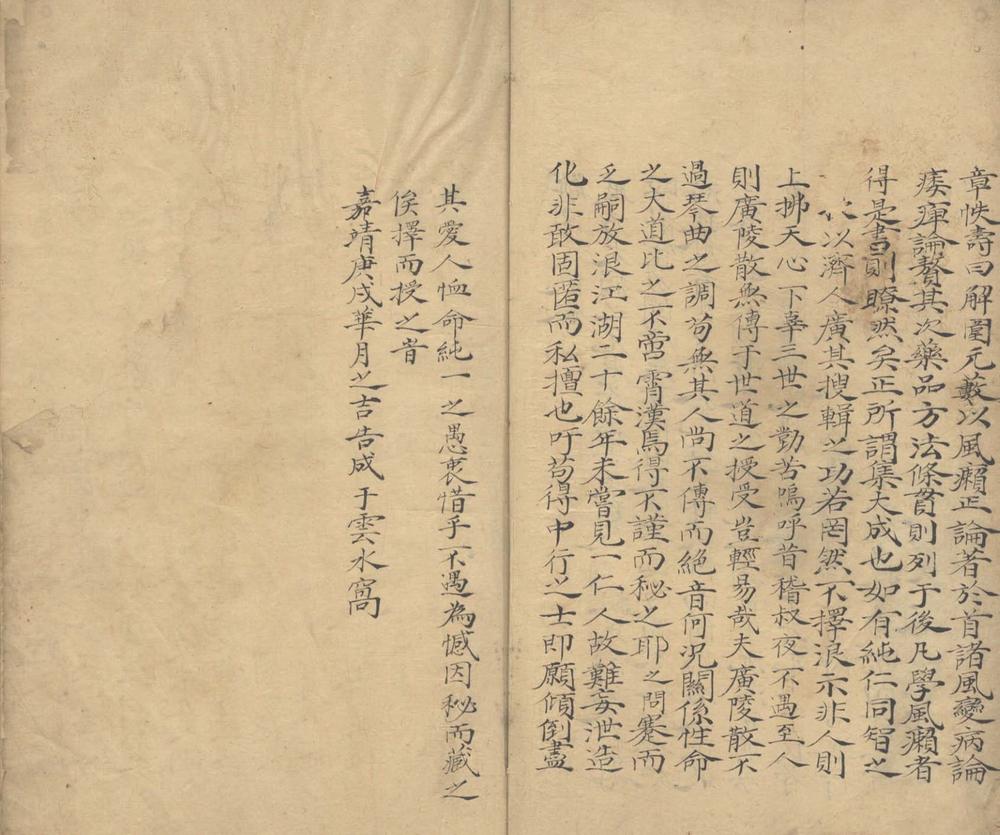 章帙壽曰解圍元藪以風癩正論著於首諸風變病論
痪痺論贅其次藥品方法條貫則列于後凡學風癩者
得是書則瞭然矣正所謂集大成也如有純仁同智之
以濟人廣其搜輯之功若罔然不擇浪示非人則
上拂天心下辜三世之勤苦嗚呼昔嵇叔夜不遇至人
則廣陵散無傳于世道之授受豈輕易哉夫廣陵散不
過琴曲之調苟無其人尚不傳而絕音何况關係性命
之大道比之不啻霄漢焉得不謹而秘之耶之問蹇而
乏嗣放浪江湖二十餘年未嘗見一仁人故難妄泄造
化非敢固匿而私擅也吁苟得中行之士即願傾倒盡
其愛人恤命純一之愚衷惜乎不遇為憾因秘而藏之
俟擇而授之耆
嘉靖庚戌華月之吉告成于雲水窩